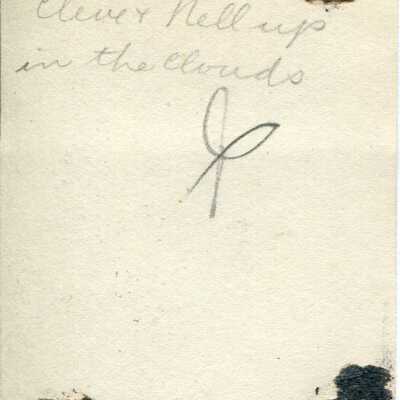 Cleve & Nell up
in the clouds